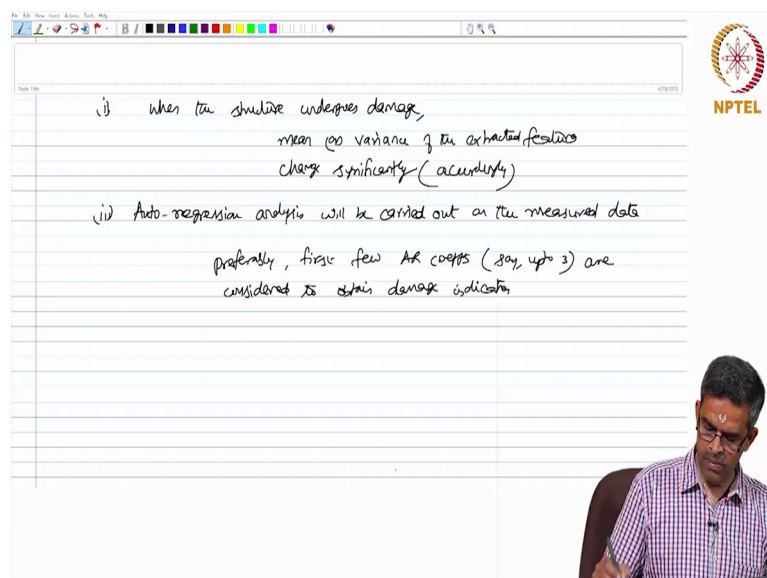 File Edit View Insert Actions Tools Help
B I
NPTEL
Note Title
4/19/2018
(i) When the structure undergoes damage,
mean (or) variance of the extracted feature
change significantly (accordingly)
(ii) Auto-regression analysis will be carried out on the measured data
preferably, first few AR coeffs (say, upto 3) are
considered to obtain damage indicator